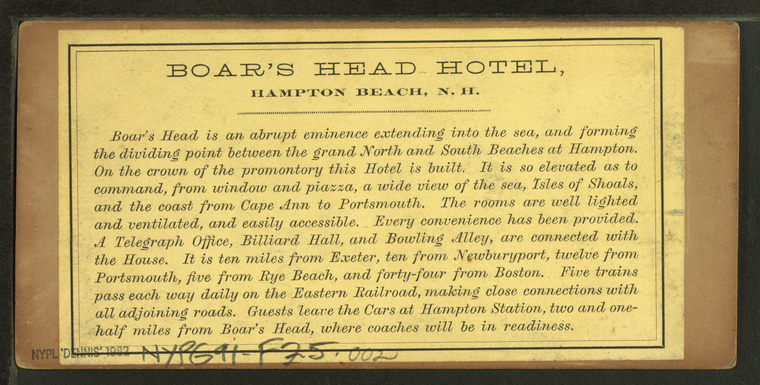 BOAR'S HEAD HOTEL,
HAMPTON BEACH, N. H.
Boar's Head is an abrupt eminence extending into the sea, and forming
the dividing point between the grand North and South Beaches at Hampton.
On the crown of the promontory this Hotel is built. It is so elevated as to
command, from window and piazza, a wide view of the sea, Isles of Shoals,
and the coast from Cape Ann to Portsmouth. The rooms are well lighted
and ventilated, and easily accessible. Every convenience has been provided.
A Telegraph Office, Billiard Hall, and Bowling Alley, are connected with
the House. It is ten miles from Exeter, ten from Newburyport, twelve from
Portsmouth, five from Rye Beach, and forty-four from Boston. Five trains
pass each way daily on the Eastern Railroad, making close connections with
all adjoining roads. Guests leave the Cars at Hampton Station, two and one-
half miles from Boar's Head, where coaches will be in readiness.
NYPL 'DENNIS' 1982 NYPG91-F25. 002